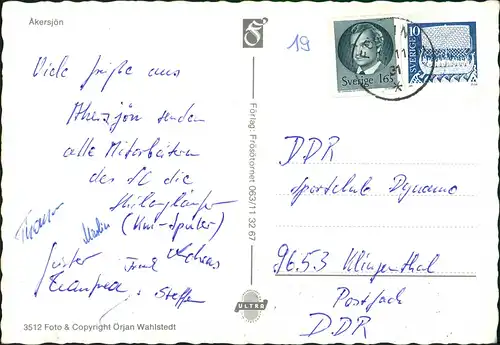 Åkersjön
19
Sverige 165
SVERIGE 10
11
31
Viele Grüße aus
Åkersjön senden
alle Mitarbeiter
des SC die
Skilangläufer
(KM-Sprüter)
Martin
Andreas
Frank
Günter
Manfred
Steffen
Förlag: Frösötornet 063/11 32 67
ULTRA
DDR
Sportclub Dynamo
9653 Klingenthal
Postfach
DDR
3512 Foto & Copyright Örjan Wahlstedt